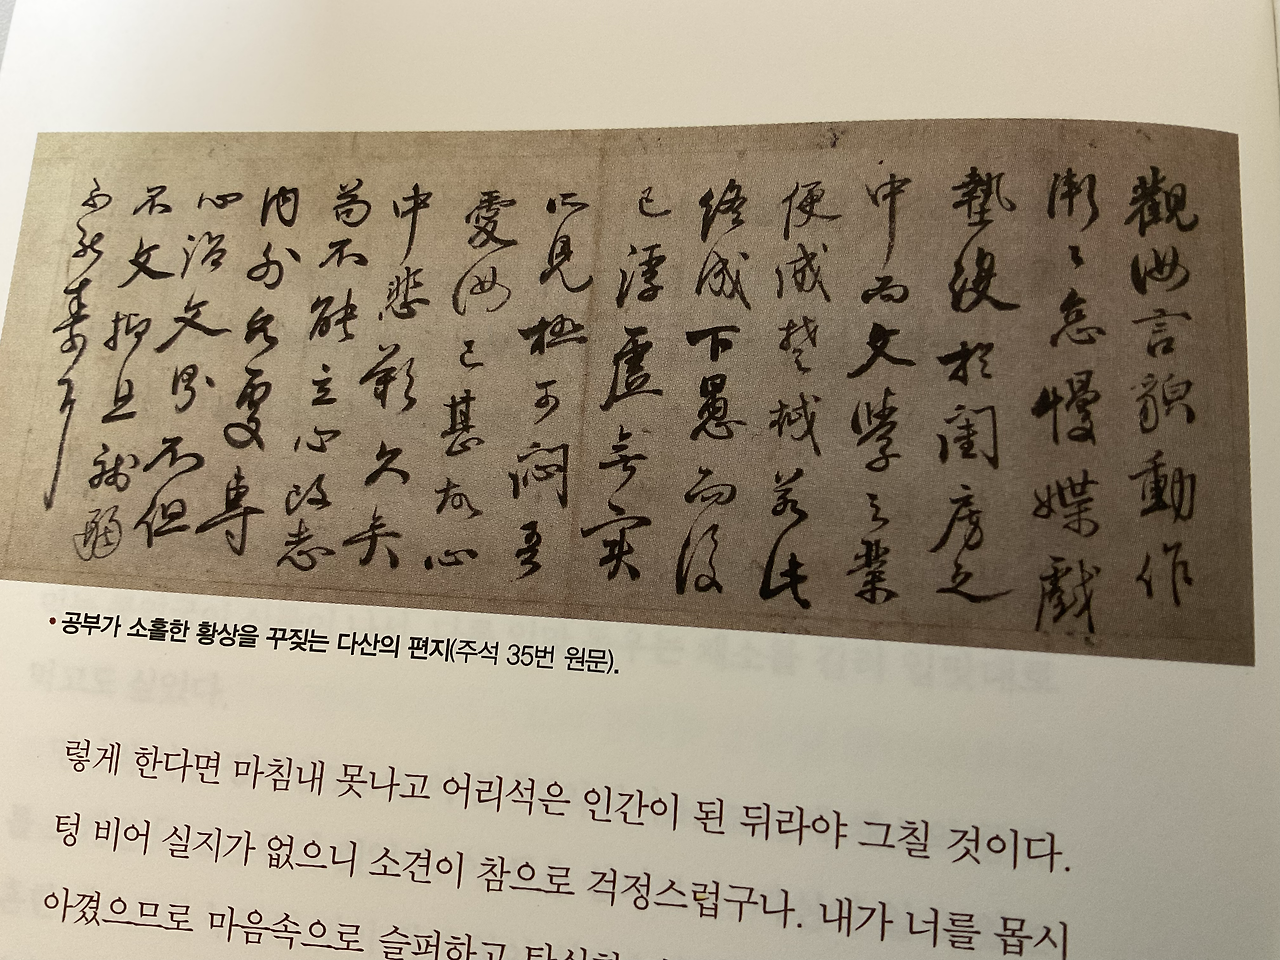 觀汝言貌動作
漸〻怠慢媟戲
墊沒於閨房之
中而文學之業
便成楚越若此
終成下愚而後
已浮虛無実
所見極可悶吾
愛汝已甚故心
中悲歎久矣
苟不能立心改志
內外各處專
心治文 不但
不文抑且
不能壽
• 공부가 소홀한 황상을 꾸짖는 다산의 편지(주석 35번 원문).
렇게 한다면 마침내 못나고 어리석은 인간이 된 뒤라야 그칠 것이다.
텅 비어 실지가 없으니 소견이 참으로 걱정스럽구나. 내가 너를 몹시
아꼈으므로 마음속으로 슬퍼하고